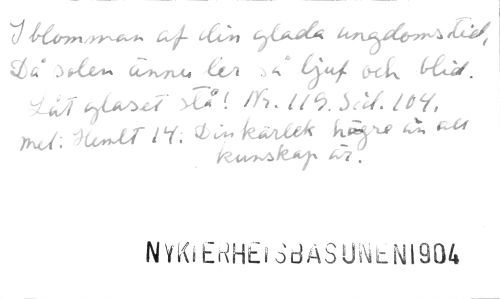 I blomman af din glada ungdomstid,
Då solen ännu ler så ljuf och blid.
Låt glaset stå! Nr. 119. Sid. 104.
mel: Hemlt 14: Din kärlek högre än all
kunskap är.
NYKTERHETSBASUNEN 1904